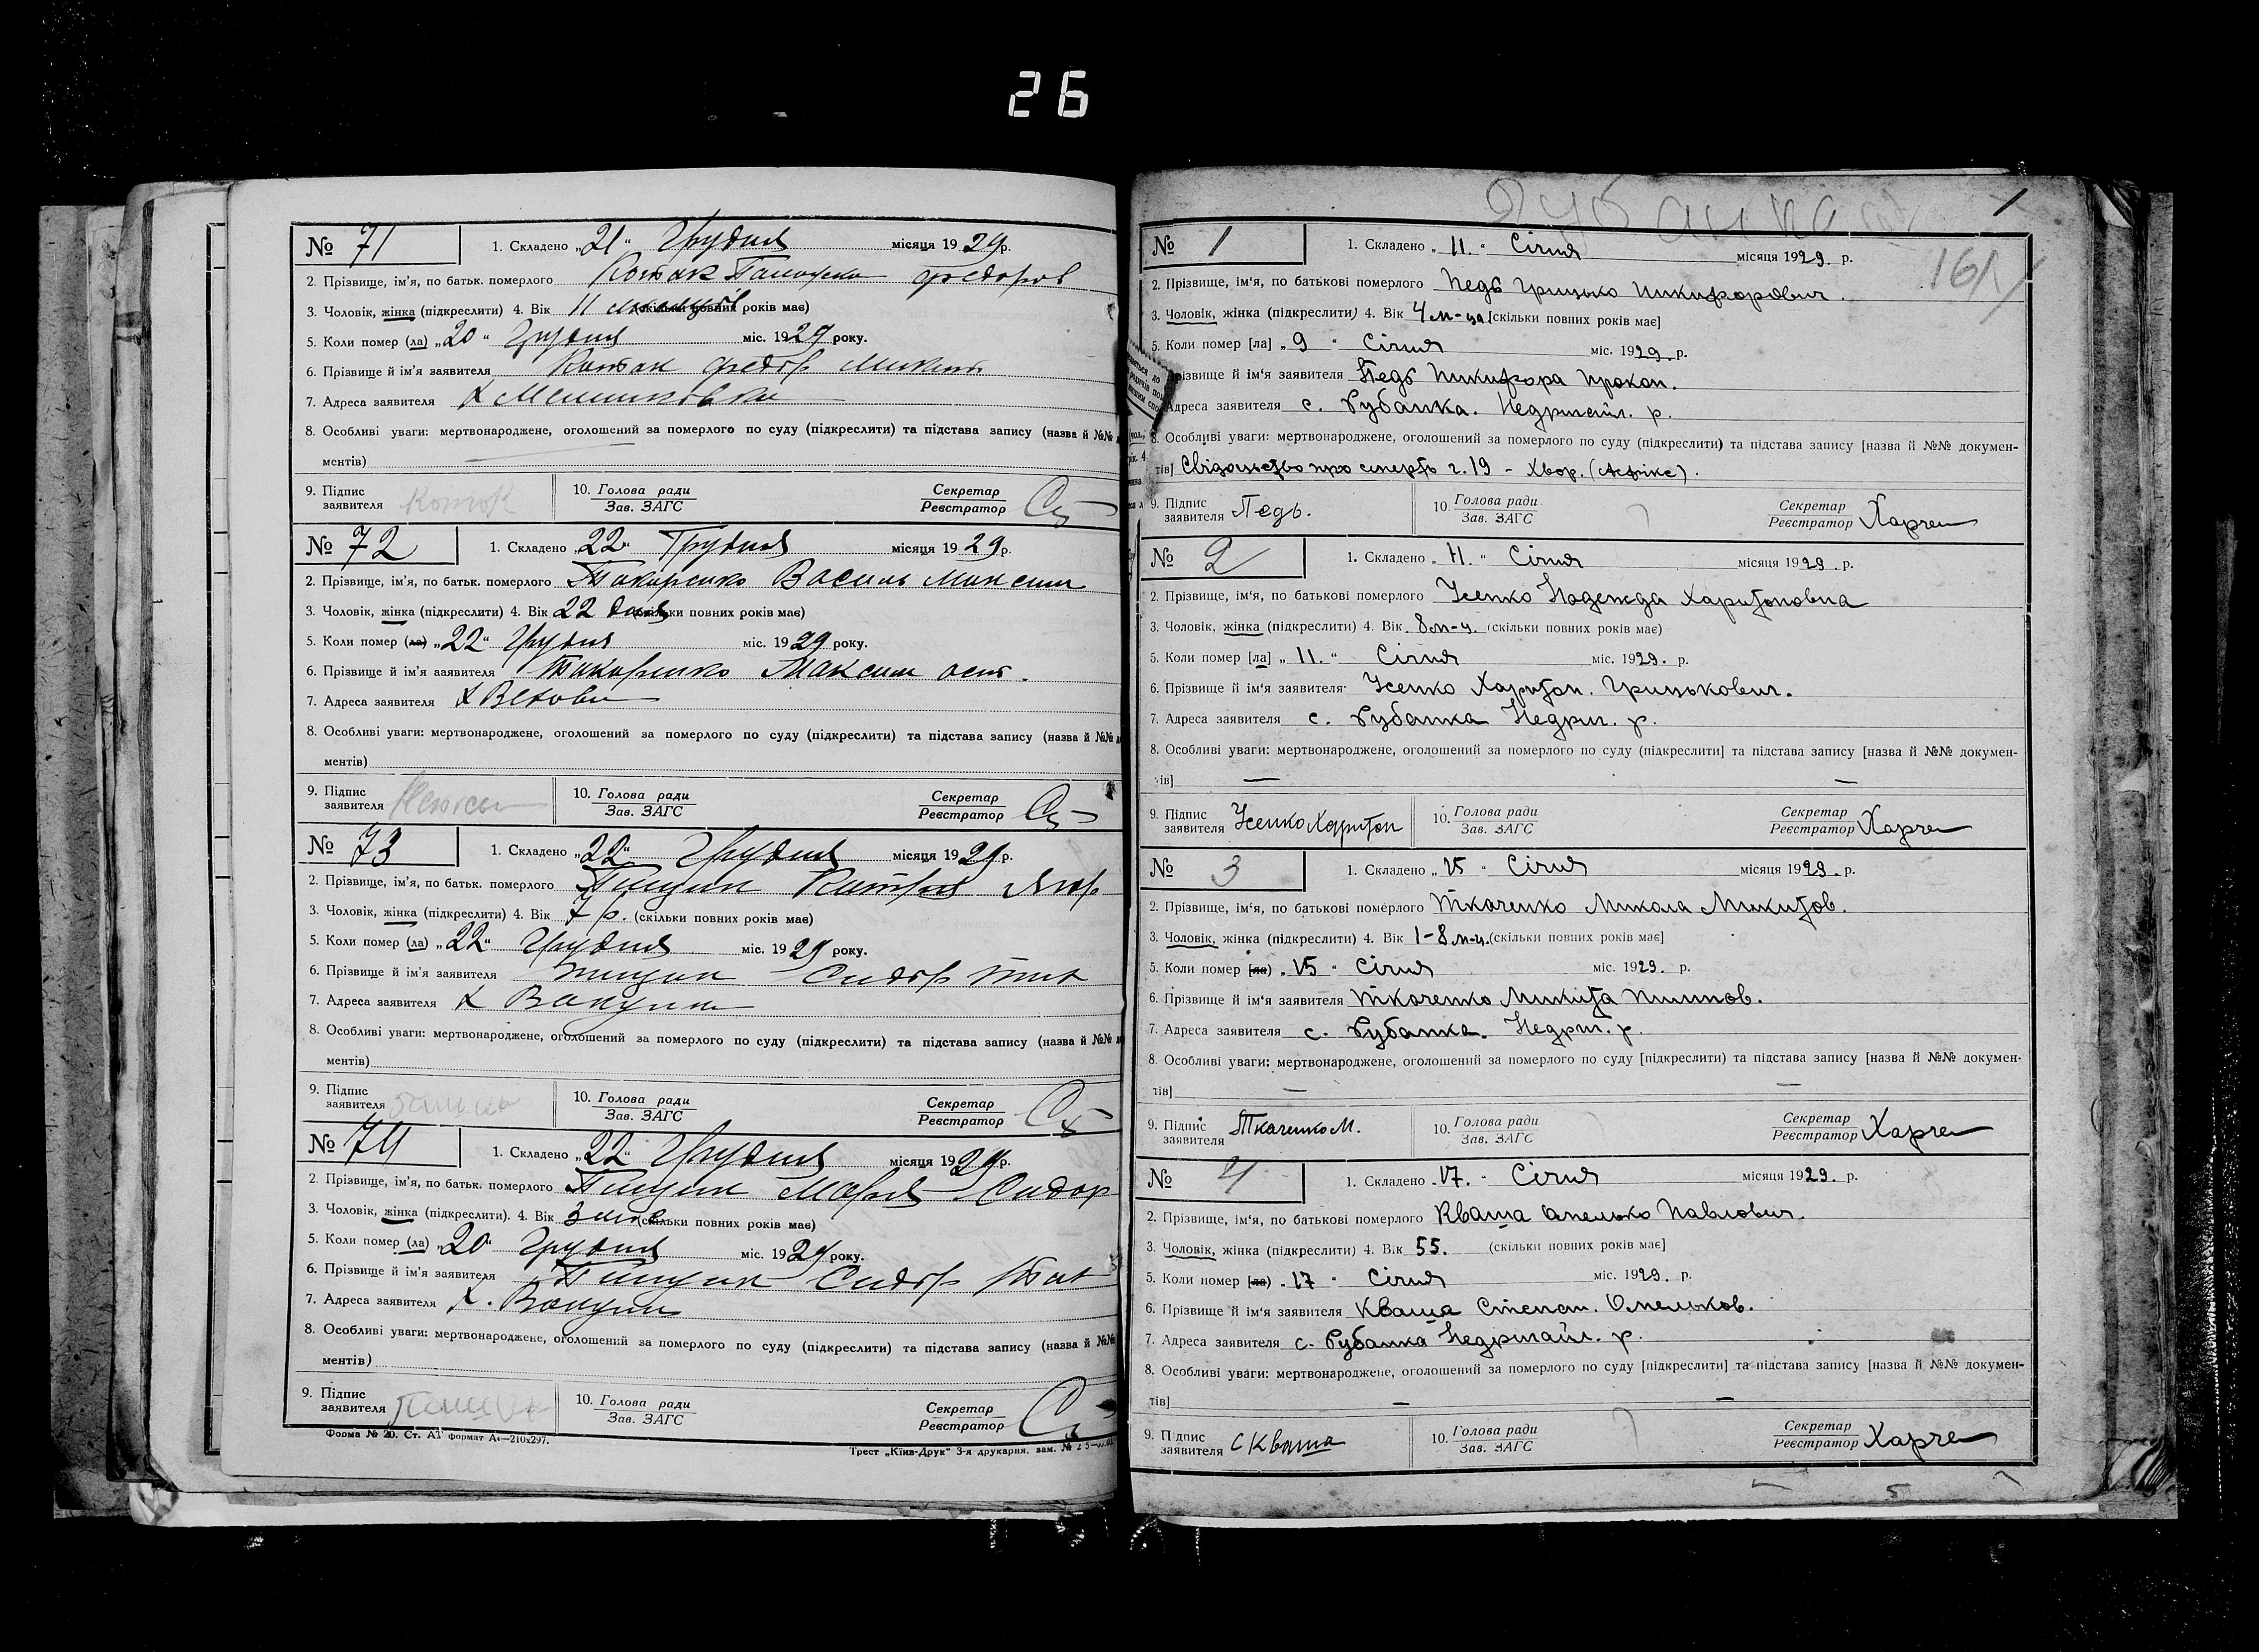 26
№ 71 1. Складено „21“ Грудня місяця 1929р.
2. Прізвище, ім'я, по батьк. померлого Федоров
3. Чоловік, жінка (підкреслити) 4. Вік 11 місяців (скільки повних років має)
5. Коли помер (ла) „20“ Грудня міс. 1929 року.
6. Прізвище й ім'я заявителя Федір
7. Адреса заявителя
8. Особливі уваги: мертвонароджене, оголошений за померлого по суду (підкреслити) та підстава запису (назва й №№
ментів)
9. Підпис заявителя Коток 10. Голова ради Зав. ЗАГС Секретар Реєстратор
№ 72 1. Складено „22“ Грудня місяця 1929р.
2. Прізвище, ім'я, по батьк. померлого Василь Максим
3. Чоловік, жінка (підкреслити) 4. Вік 22 дня (скільки повних років має)
5. Коли помер (ла) „22“ Грудня міс. 1929 року.
6. Прізвище й ім'я заявителя Максим
7. Адреса заявителя х
8. Особливі уваги: мертвонароджене, оголошений за померлого по суду (підкреслити) та підстава запису (назва й №№
ментів)
9. Підпис заявителя 10. Голова ради Зав. ЗАГС Секретар Реєстратор
№ 73 1. Складено „22“ Грудня місяця 1929р.
2. Прізвище, ім'я, по батьк. померлого
3. Чоловік, жінка (підкреслити) 4. Вік 7 р. (скільки повних років має)
5. Коли помер (ла) „22“ Грудня міс. 1929 року.
6. Прізвище й ім'я заявителя Сидір
7. Адреса заявителя х
8. Особливі уваги: мертвонароджене, оголошений за померлого по суду (підкреслити) та підстава запису (назва й №№
ментів)
9. Підпис заявителя 10. Голова ради Зав. ЗАГС Секретар Реєстратор
№ 74 1. Складено „22“ Грудня місяця 1929р.
2. Прізвище, ім'я, по батьк. померлого Марія Сидор
3. Чоловік, жінка (підкреслити). 4. Вік 3 (скільки повних років має)
5. Коли помер (ла) „20“ Грудня міс. 1929 року.
6. Прізвище й ім'я заявителя Сидір
7. Адреса заявителя х.
8. Особливі уваги: мертвонароджене, оголошений за померлого по суду (підкреслити) та підстава запису (назва й №№
ментів)
9. Підпис заявителя 10. Голова ради Зав. ЗАГС Секретар Реєстратор
Форма № 20. Ст. АТ формат А4—210х297.
Трест „Київ-Друк“ 3-я друкарня, зам. №
Рубанка 1
161
№ 1 1. Складено „11.“ Січня місяця 1929. р.
2. Прізвище, ім'я, по батькові померлого Педь Грицько Никифорович.
3. Чоловік, жінка (підкреслити) 4. Вік 4 м-ця [скільки повних років має]
5. Коли помер [ла] „9“ Січня міс. 1929. р.
різвище й ім'я заявителя Педь Никифора Прокоп.
Адреса заявителя с. Рубанка. Недригайл. р.
8. Особливі уваги: мертвонароджене, оголошений за померлого по суду (підкреслити) та підстава запису [назва й №№ докумен-
тів] Свідоцтво про смерть ч. 19 - Хвор. (Асфікс).
9. Підпис заявителя Педь. 10. Голова ради Зав. ЗАГС Секретар Реєстратор Харче
№ 2 1. Складено „11.“ Січня місяця 1929. р.
2. Прізвище, ім'я, по батькові померлого Усенко Надежда Харитоновна
3. Чоловік, жінка (підкреслити) 4. Вік 8 м-ц. (скільки повних років має)
5. Коли помер [ла] „11.“ Січня міс. 1929. р.
6. Прізвище й ім'я заявителя Усенко Харитон. Грицькович.
7. Адреса заявителя с. Рубанка Недриг. р.
8. Особливі уваги: мертвонароджене, оголошений за померлого по суду (підкреслити] та підстава запису [назва й №№ докумен-
тів] — —
9. Підпис заявителя Усенко Харитон 10. Голова ради Зав. ЗАГС Секретар Реєстратор Харче
№ 3 1. Складено „15“ Січня місяця 1929. р.
2. Прізвище, ім'я, по батькові померлого Ткаченко Микола Микитов.
3. Чоловік, жінка (підкреслити) 4. Вік 1-8 м-ц. (скільки повних років має]
5. Коли помер [ла) „15“ Січня міс. 1929. р.
6. Прізвище й ім'я заявителя Ткаченко Микита Пилипов.
7. Адреса заявителя с. Рубанка. Недриг. р.
8. Особливі уваги: мертвонароджене, оголошений за померлого по суду [підкреслити) та підстава запису [назва й №№ докумен-
тів] — —
9. Підпис заявителя Ткаченко М. 10. Голова ради Зав. ЗАГС Секретар Реєстратор Харче
№ 4 1. Складено „17.“ Січня місяця 1929. р.
2. Прізвище, ім'я, по батькові померлого Кваша Омелько Павлович.
3. Чоловік, жінка (підкреслити) 4. Вік 55. (скільки повних років має]
5. Коли помер [ла) „17“ Січня міс. 1929. р.
6. Прізвище й ім'я заявителя Кваша Степан. Омельков.
7. Адреса заявителя с. Рубанка Недригайл. р.
8. Особливі уваги: мертвонароджене, оголошений за померлого по суду [підкреслити] та підстава запису [назва й №№ докумен-
тів] — —
9. Підпис заявителя С Кваша 10. Голова ради Зав. ЗАГС Секретар Реєстратор Харче